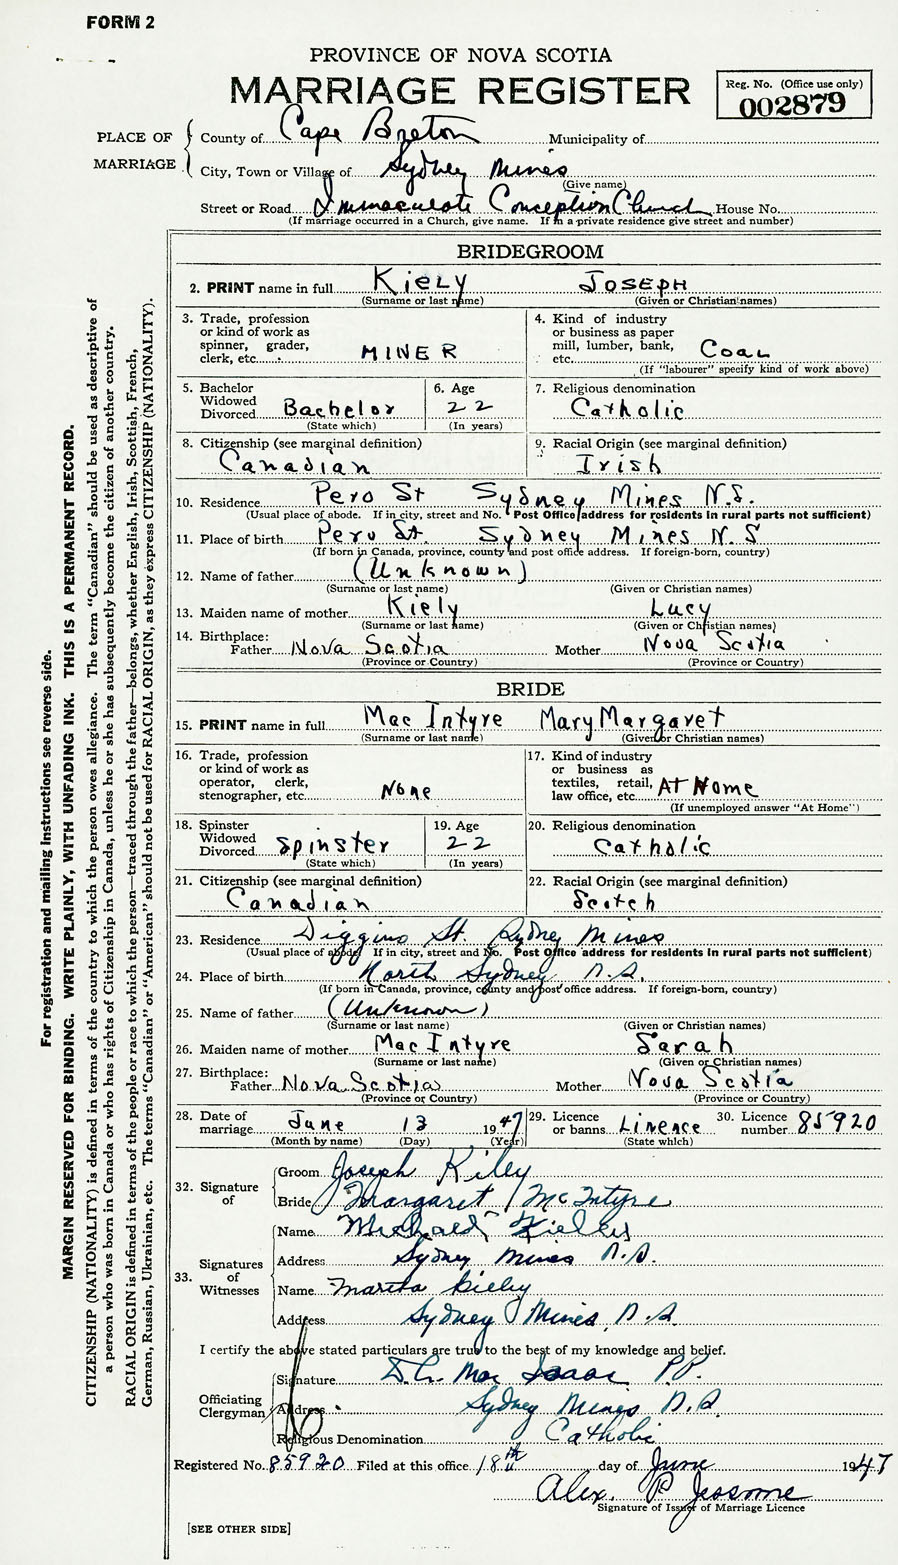 FORM 2
PROVINCE OF NOVA SCOTIA
MARRIAGE REGISTER
Reg. No. (Office use only)
002879
PLACE OF MARRIAGE
County of Cape Breton Municipality of
City, Town or Village of Sydney Mines
(Give name)
Street or Road Immaculate Conception Church House No.
(If marriage occurred in a Church, give name. If in a private residence give street and number)
BRIDEGROOM
2. PRINT name in full Kiely Joseph
(Surname or last name) (Given or Christian names)
3. Trade, profession or kind of work as spinner, grader, clerk, etc. MINER
4. Kind of industry or business as paper mill, lumber, bank, etc. Coal
(If "labourer" specify kind of work above)
5. Bachelor Widowed Divorced Bachelor
(State which)
6. Age 22
(In years)
7. Religious denomination Catholic
8. Citizenship (see marginal definition) Canadian
9. Racial Origin (see marginal definition) Irish
10. Residence Pero St Sydney Mines N.S.
(Usual place of abode. If in city, street and No. Post Office address for residents in rural parts not sufficient)
11. Place of birth Pero St. Sydney Mines N.S
(If born in Canada, province, county and post office address. If foreign-born, country)
12. Name of father (Unknown)
(Surname or last name) (Given or Christian names)
13. Maiden name of mother Kiely Lucy
(Surname or last name) (Given or Christian names)
14. Birthplace: Father Nova Scotia Mother Nova Scotia
(Province or Country) (Province or Country)
BRIDE
15. PRINT name in full Mac Intyre Mary Margaret
(Surname or last name) (Given or Christian names)
16. Trade, profession or kind of work as operator, clerk, stenographer, etc. None
17. Kind of industry or business as textiles, retail, law office, etc. At Home
(If unemployed answer "At Home")
18. Spinster Widowed Divorced Spinster
(State which)
19. Age 22
(In years)
20. Religious denomination Catholic
21. Citizenship (see marginal definition) Canadian
22. Racial Origin (see marginal definition) Scotch
23. Residence Diggins St. Sydney Mines
(Usual place of abode. If in city, street and No. Post Office address for residents in rural parts not sufficient)
24. Place of birth North Sydney N.S.
(If born in Canada, province, county and post office address. If foreign-born, country)
25. Name of father (Unknown)
(Surname or last name) (Given or Christian names)
26. Maiden name of mother Mac Intyre Sarah
(Surname or last name) (Given or Christian names)
27. Birthplace: Father Nova Scotia Mother Nova Scotia
(Province or Country) (Province or Country)
28. Date of marriage June 13 1947
(Month by name) (Day) (Year)
29. Licence or banns Linence
(State which)
30. Licence number 85920
32. Signature of
Groom Joseph Kiley
Bride Margaret McIntyre
33. Signatures of Witnesses
Name Michael Kielly
Address Sydney Mines N.S.
Name Martha Kieley
Address Sydney Mines, N.S.
I certify the above stated particulars are true to the best of my knowledge and belief.
Officiating Clergyman
Signature D.C. Mac Isaac P.P.
Address Sydney Mines N.S.
Religious Denomination Catholic
Registered No. 85920 Filed at this office 18th day of June 1947
Alex. P Jessome
Signature of Issuer of Marriage Licence
[SEE OTHER SIDE]
For registration and mailing instructions see reverse side.
MARGIN RESERVED FOR BINDING. WRITE PLAINLY, WITH UNFADING INK. THIS IS A PERMANENT RECORD.
CITIZENSHIP (NATIONALITY) is defined in terms of the country to which the person owes allegiance. The term "Canadian" should be used as descriptive of
a person who was born in Canada or who has rights of Citizenship in Canada, unless he or she has subsequently become the citizen of another country.
RACIAL ORIGIN is defined in terms of the people or race to which the person—traced through the father—belongs, whether English, Irish, Scottish, French,
German, Russian, Ukrainian, etc. The terms "Canadian" or "American" should not be used for RACIAL ORIGIN, as they express CITIZENSHIP (NATIONALITY).